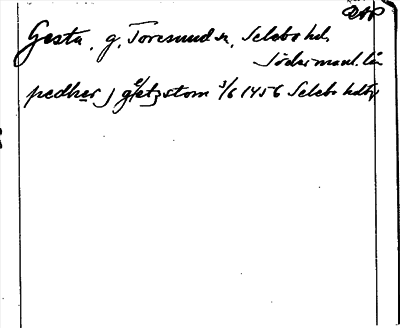 DAP
Gesta, g, Toresunds sn, Selebo hd,
Södermanl. län
pedher j gætzstom 3/6 1456 Selebo hdbr